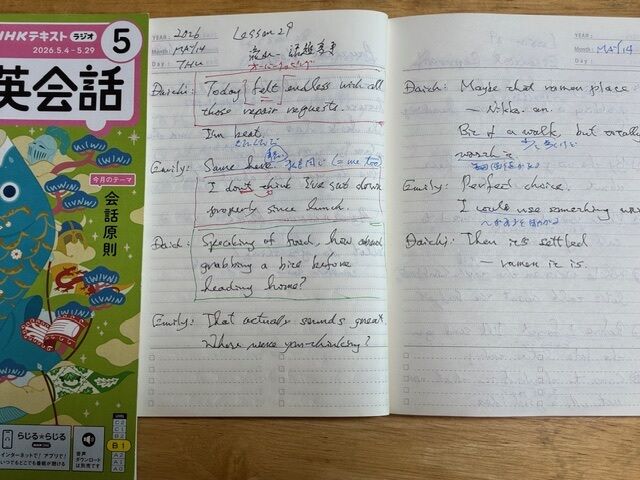 NHKテキスト ラジオ
2026.5.4-5.29
5
英会話
今月のテーマ
会話原則
LEVEL
C2
C1
B2
B1
A2
A1
A0
らじる★らじる
インターネットで! アプリで!
いつでもどこでも番組が聴ける
音声
ダウンロード
は別売です
YEAR: 2026
Month: MAY/14
Day: THU
Lesson 29
Daichi: Today felt endless with all
those repair requests.
I'm beat.
Emily: Same here. (= me too)
I don't think I've sat down
properly since lunch.
Daichi: Speaking of food, how about
grabbing a bite before
heading home?
Emily: That actually sounds great.
Where were you thinking?
YEAR:
Month: MAY/14
Day:
Daichi: Maybe that ramen place
- Nikko-an.
Bit of a walk, but totally
worth it
Emily: Perfect choice.
I could use something
Daichi: Then it's settled
- ramen it is.